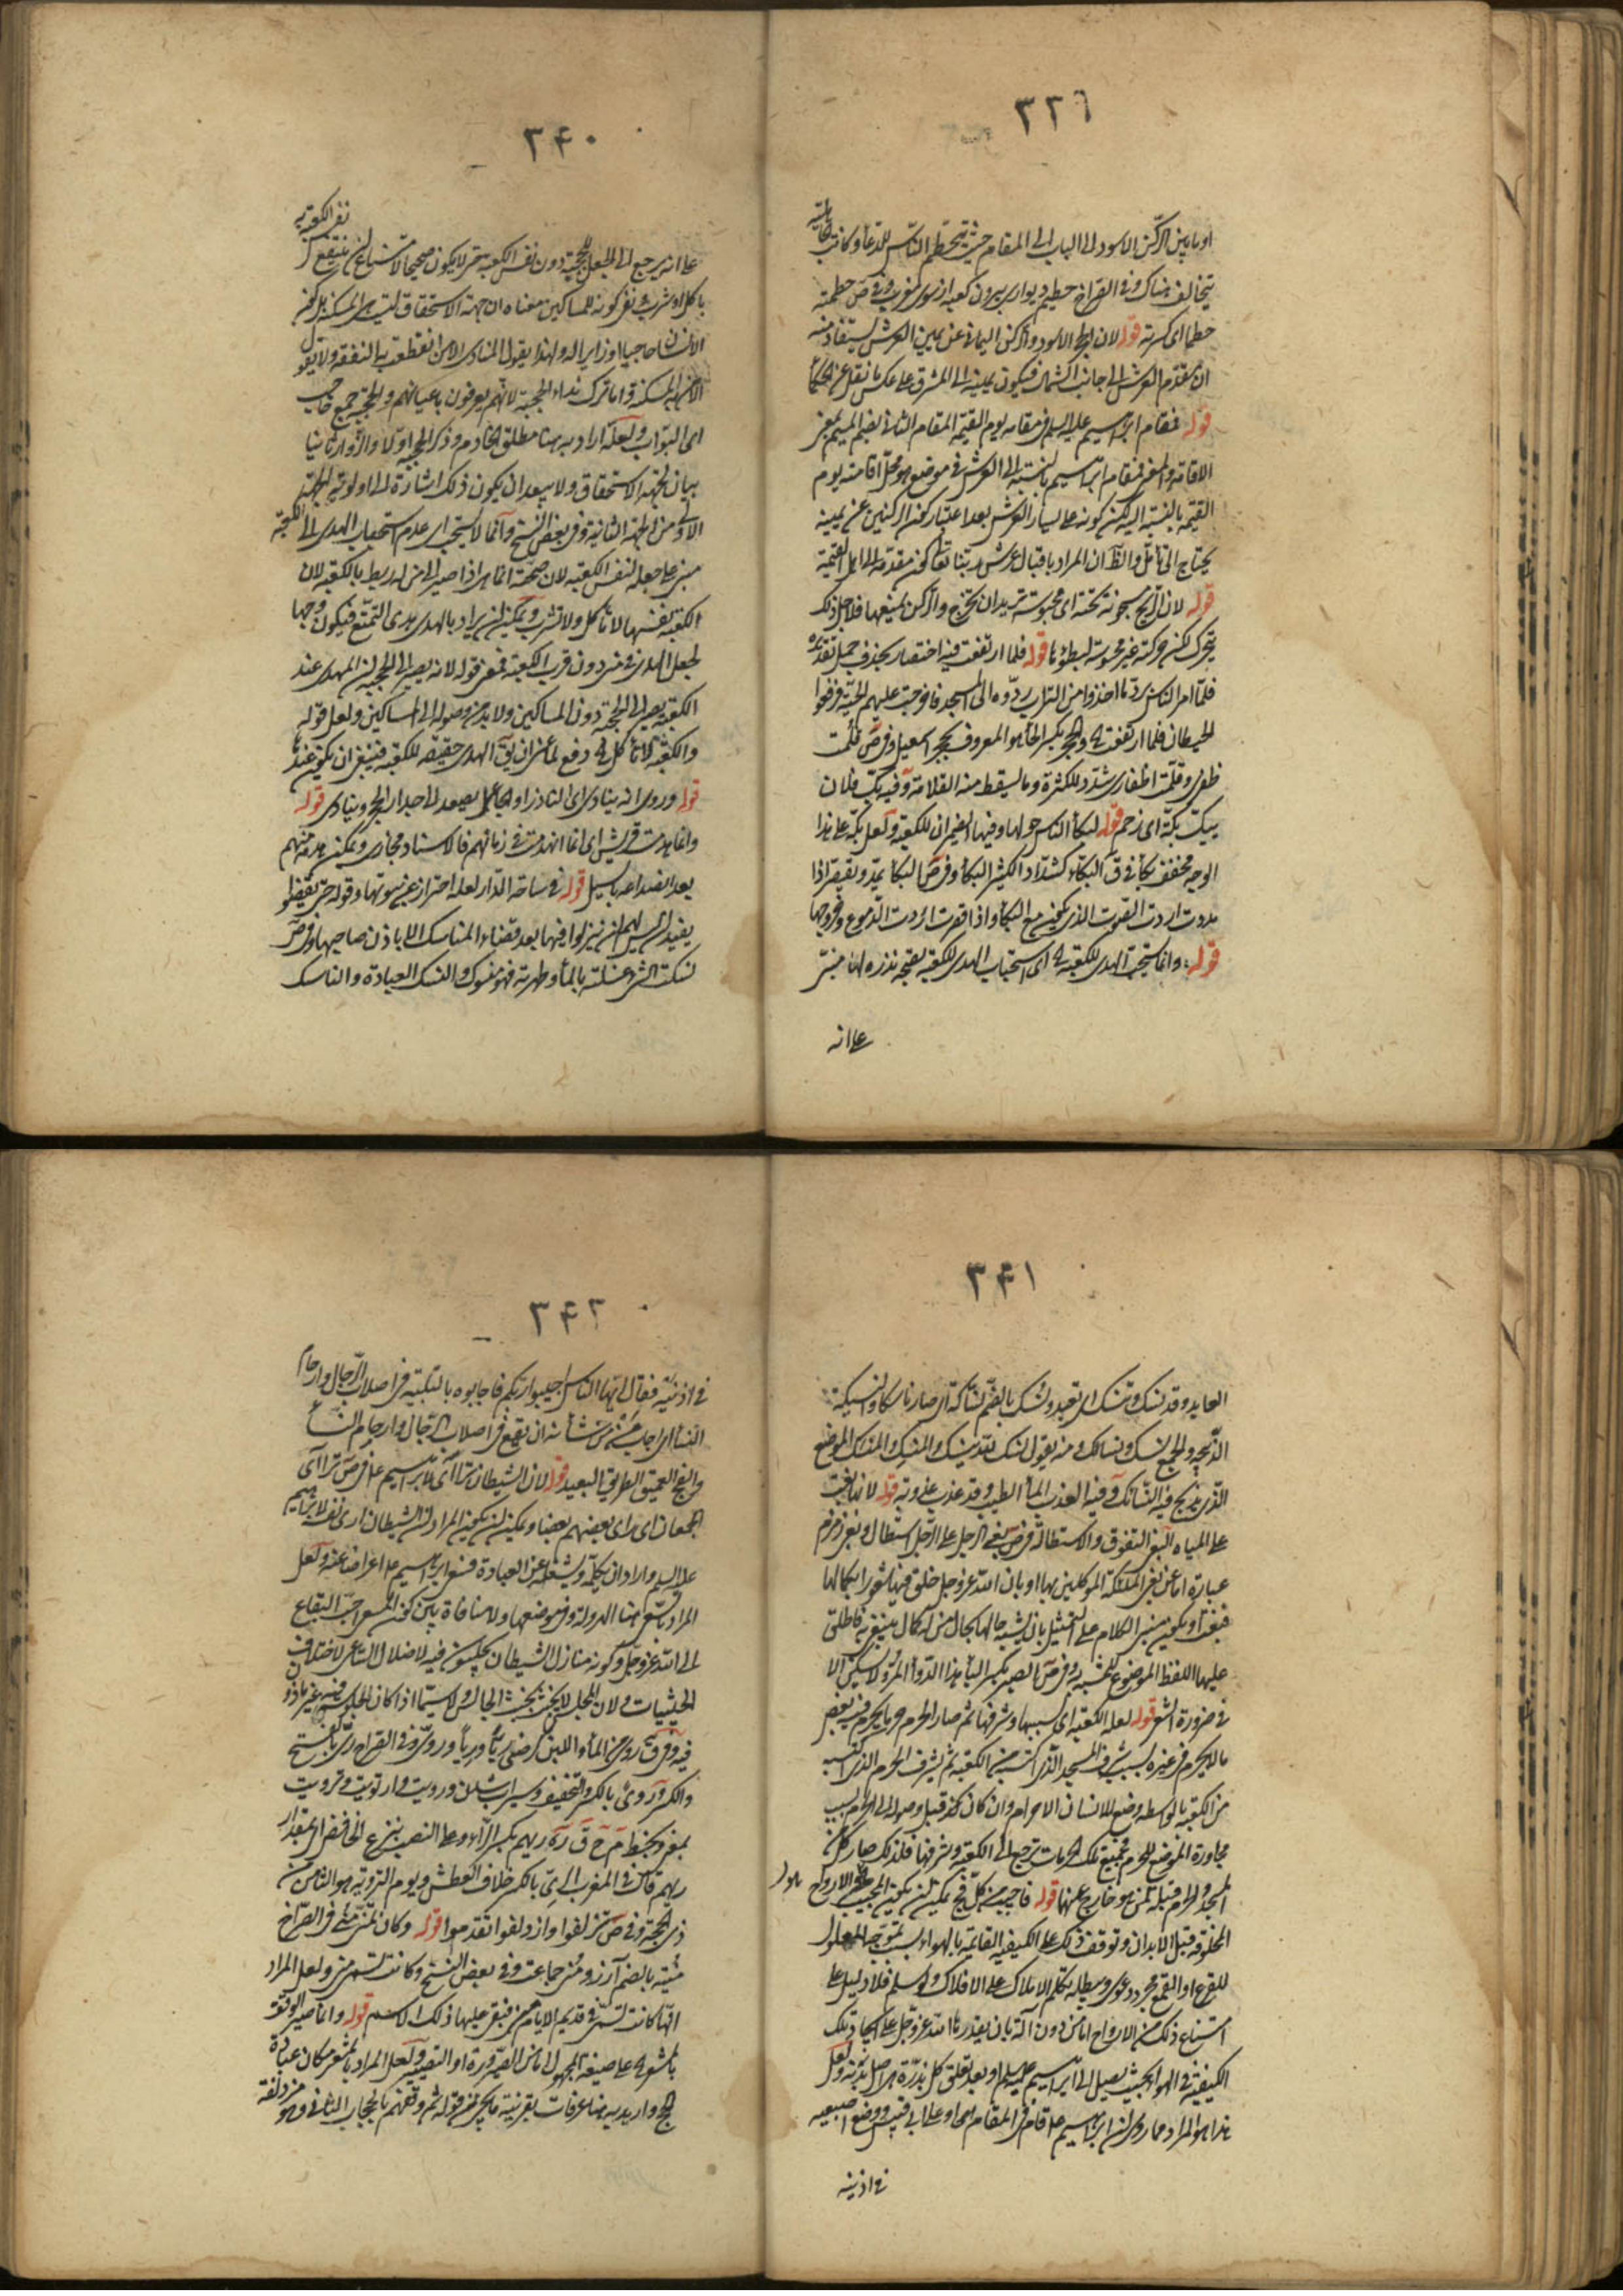 ٣٣٩
او ما بين الركن الاسود الى الباب الى المقام حيث يتحطم الناس للدعاء وكانت الجاهلية
يتحالف هناك وفي القراح حطيم ديوارى بيرون كعبه از سوى مغرب وفي ص حطمته
حطما اى كسرته قوله لان الحجر الاسود والركن اليماني عن يمين العرش يستفاد منه
ان مقدم العرش الى جانب الشمال فيكون يمينه الى المشرق على عكس ما نقل عن الحكماء
قوله فمقام ابراهيم عليه السلم في مقامه يوم القيمة المقام الثاني بضم الميم بمعنى
الاقامة والمعنى فمقام ابراهيم بالنسبة الى العرش في موضع هو محل اقامته يوم
القيمة بالنسبة اليه لكن كونه على يسار العرش بعد اعتبار كون الركنين عن يمينه
يحتاج الى تأمل والظ ان المراد باقبال عرش ربنا تعالى كون مقدمه الى اهل القيمة
قوله لان الريح مسجونة تحته اى محبوسة تريد ان تخرج والركن يمنعها فلاجل ذلك
يتحرك لكن حركته غير محسوسة لبطوئها قوله فلما ارتفعت فيه اختصار بحذف جمل تقديره
فلما امر الناس برد ما اخذوا من التراب ردوه الى المسجد فاخرجت عليهم الحية فرفعوا
الحيطان فلما ارتفعت والحجر بكسر الحاء هو المعروف بحجر اسمعيل وفي ص قلمت
ظفرى وقلمت اظفارى شدد للكثرة وما يسقط منه القلامة وفيه بك فلان
يبك بكة اى زحم قوله لبكاء الناس حولها وفيها الضميران للكعبة ولعل بكة على هذا
الوجه مخفف بكاء في ق البكاء كشداد الكثير البكاء وفي ص البكاء يمد ويقصر اذا
مددت اردت الصوت الذى يكون مع البكاء واذا قصرت اردت الدموع وخروجها
قوله وانما يستحب الهدى للكعبة اى استحباب الهدى للكعبة بصحة نذره له مبنى
على انه
٣٤٠
على انه يرجع الى الجعل للحجبة دون نفس الكعبة حتى لا يكون صحيحا لامتناع ان ينتفع نفس الكعبة به
باكل او شرب نفى كونه للمساكين معناه ان جهة الاستحقاق ليست هى المسكنة بل كون
الانسان حاجيا او زايرا له ولهذا يقول المنادى الا من انقطعت به النفقة ولا يقول
الا من به المسكنة واما ترك نداء الحجبة لانهم يعرفون باعيانهم والحجبة جمع حاجب
اى البواب ولعله اراد به هنا مطلق الخادم وذكر الحجبة اولا والزوار ثانيا
بيان لجهة الاستحقاق ولا يبعد ان يكون ذلك اشارة الى اولوية الجهة
الاولى من الجهة الثانية وفي بعض النسخ وانما لا يستحب اى عدم استحباب الهدى الى الكعبة
مبنى على جعله لنفس الكعبة لان صحته انما هى اذا صير الى من له ربط بالكعبة لان
الكعبة بنفسها لا تأكل ولا تشرب ويمكن ان يراد بالهدى هدى التمتع فيكون وجها
لجعل الهدى في منى دون قرب الكعبة فمعنى قوله لانه يصير الى الحجبة ان الهدى عند
الكعبة يصير الى الحجبة دون المساكين ولا بد من وصوله الى المساكين ولعل قوله
والكعبة لا تأكل الخ دفع لمن يق الهدى حقيقة للكعبة فينبغى ان يكون عندها
قوله وروى انه ينادى اى الناذر او الجاعل يصعد الى جدار الحجر وينادى قوله
وانما هدمت قريش اى انما انهدمت في زمانهم فالاسناد مجازى ويمكن هدمهم
بعد انصداعه بالسيل قوله في ساحة الدار لعله احتراز عن بيوتها وقوله حتى يقضوا
يفيد ان ليس لهم ان ينزلوا فيها بعد قضاء المناسك الا باذن صاحبها وفي ص
نسكت الشئ غسلته بالماء وطهرته فهو منسوك والنسك العبادة والناسك
٣٤١
العابد وقد نسك وتنسك اى تعبد ونسك بالضم نساكة اى صار ناسكا والنسيكة
الذبيحة والجمع نسك ونسائك ومنه يقول نسك لله ينسك والمنسك والمنسك الموضع
الذى يذبح فيه النسائك وفيه العذب الماء الطيب وقد عذب عذوبة قوله لانها بغت
على المياه البغى التفوق والاستطالة في ص بغى الرجل على الرجل استطال وبغى زمزم
عبارة اما عن بغى الملئكة الموكلين بها او بان الله عز وجل خلق فيها شعورا بكمالها
فبغت ويكون مبنى الكلام على التمثيل بان يشبه حالها بحال من له كمال يبغى به فاطلق
عليها اللفظ الموضوع للمشبه به وفي ص الصبر بكسر الباء هذا الدواء المر ولا يسكن الا
في ضرورة الشعر قوله لعلة الكعبة اى بسببها وشرفها ثم صار الحرم حرما يحرم فيه بعض
ما لا يحرم في غيره بسبب شرف المسجد الذى اكتسبه من الكعبة ثم بشرف الحرم الذى اكتسبه
من الكعبة بالواسطة وضع للانسان الاحرام وان كان كونه قبل وصوله الى الحرم بسبب
مجاورة الموضع للحرم فجميع تلك الحرمات ترجع الى الكعبة وشرفها فلذلك صار كل من
المسجد والحرم قبلة لمن هو خارج عنها قوله فاجيب من كل فج يمكن ان يكون المجيب هو الارواح
المخلوقة قبل الابدان وتوقف ذلك على الكيفية القائمة بالهواء بسبب تموجه المعلول
للقرع او القلع مجرد دعوى ويبطله تكلم الاملاك على الافلاك ولو سلم فلا دليل على
امتناع ذلك من الارواح اما من دون آلة بان يقدرها الله عز وجل على ايجاد تلك
الكيفية في الهواء بحيث يصل الى ابراهيم عليه السلم او بعد تعلق كل بذرة هى اصل بدنه ولعل
هذا هو المراد مما روى ان ابراهيم ع قام في المقام او على ابى قبيس ووضع اصبعيه
في اذنيه
٣٤٢
في اذنيه فقال ايها الناس اجيبوا ربكم فاجابوه بالتلبية في اصلاب الرجال وارحام
النساء اى اجاب من من شأنه ان يقع في اصلاب الرجال وارحام النساء
والفج العميق الطريق البعيد قوله لان الشيطان تراءى لابراهيم ع في ص تراءى
الجمعان اى راى بعضهم بعضا ويمكن ان يكون المراد ان الشيطان ارى نفسه لابراهيم
عليه السلم واراد ان يكلمه ويشغله عن العبادة فسعى ابراهيم ع اعراضا عنه ولعل
المراد بالسعى هنا الهرولة وفي موضعها ولا منافاة بين كون المسعى احب البقاع
الى الله عز وجل وكونه منازل الشيطان يجلسون فيه لاضلال الساعى لاختلاف
الحيثيات ولان المحل لا يخبث بخبث الجالس ولا سيما اذا كان الجلوس فيه غير ماذون
فيه وفي ق روى من الماء واللبن كرضى ريا وريا وروى وفي القراح رى بالفتح
والكسر وروى بالكسر والتخفيف سيراب شدن ورويت وارتويت وترويت
بمعنى وبخط م ح ق ره ريهم بكسر الراء وعلى النصب بنزع الخافض اى بمقدار
ريهم قال في المغرب الرى بالكسر خلاف العطش ويوم التروية هو الثامن من
ذى الحجة وفي ص تزلفوا وازدلفوا تقدموا قوله وكان تمنى منى في القراح
منية بالضم آرزو ومنى جماعت وفي بعض النسخ وكانت تسمى منى ولعل المراد
انها كانت تسمى في قديم الايام منى فبقى عليها ذلك الاسم قوله وانما صير الموقف
بالمشعر على صيغة المجهول اما من الصيرورة او التصيير ولعل المراد بالمشعر مكان عبادة
الحج واريد به هنا عرفات بقرينة ما يجئ من قوله ثم وقفهم بالحجاب الثانى وهو مزدلفة